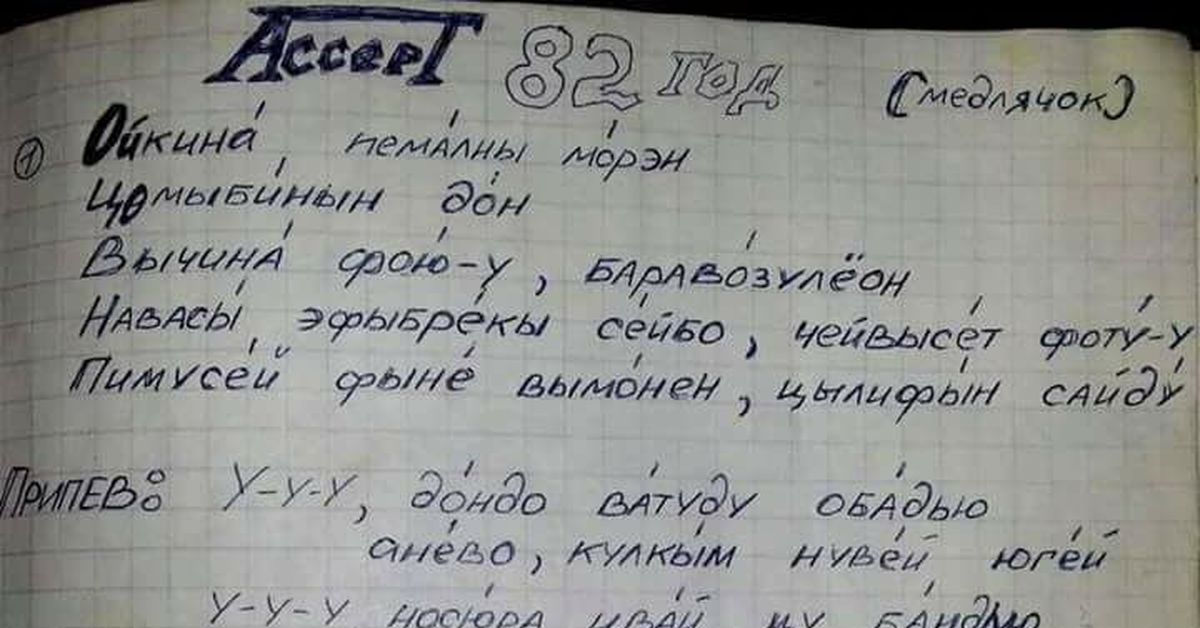 Ассерт 82 год (медлячок)
① Ойкина́, пема́лны мо́рэн
Цомыби́нын до́н
Вычина́ фою́-у, бараво́зулёон
Навасы́ эфыбре́кы се́йбо, чейвысе́т фоту́-у
Пимусе́й фыне́ вымо́нен, цылифы́н сайду́
Припев: У-у-у, до́ндо ва́туду оба́дью
ане́во, кулкы́м нуве́й юге́й
У-у-у носю́ра ива́й